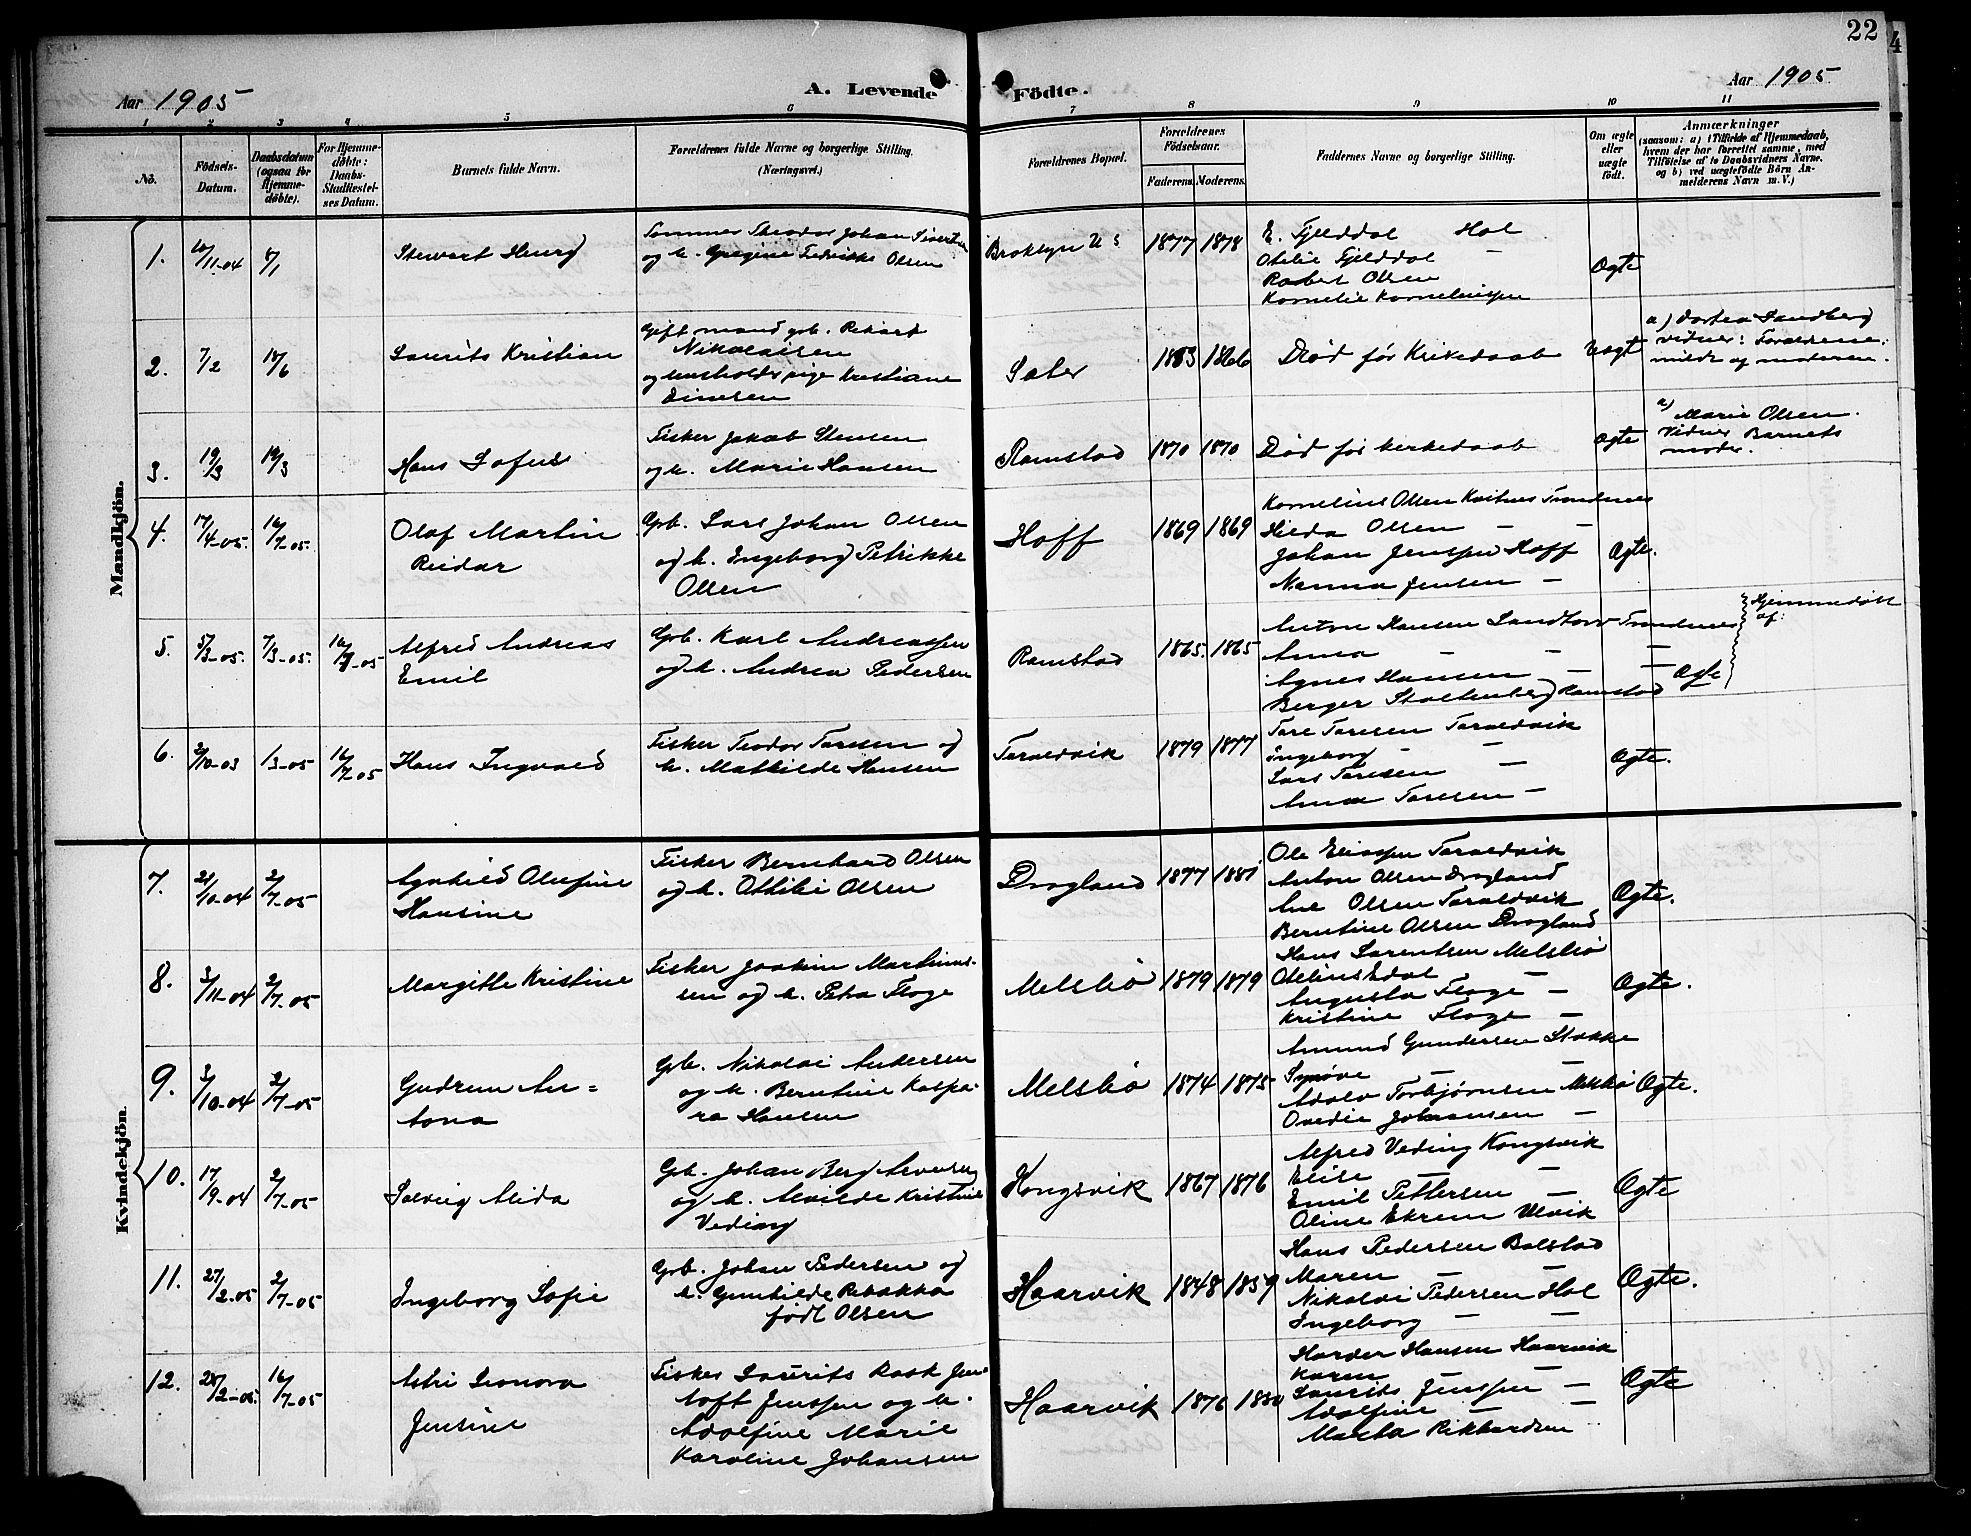 22
Aar 1905
A. Levende
Födte.
Aar 1905
1 2 3 4 5 6
7 8 9 10 11
No.
Födsels-Datum.
Daabsdatum (ogsaa for Hjemmedöbte).
For Hjemmedöbte: Daabs-Stadfæstelses Datum.
Barnets fulde Navn.
Forældrenes fulde Navne og borgerlige Stilling.
(Næringsvei.)
Forældrenes Bopæl.
Forældrenes Födselsaar.
Faderens. Moderens.
Faddernes Navne og borgerlige Stilling.
Om ægte eller uægte födt.
Anmærkninger
(saasom: a) i Tilfælde af Hjemmedaab,
hvem der har forrettet samme, med
Tilföielse af to Daabsvidners Navne.
og b) ved uægtefödte Börn An-
melderens Navn m. V.)
Mandkjön.
1. 8/1 Stewart Henry
Tømmer Theodor Johan Sivertsen
og h. Gregine Fedrikke Olsen
Broklyn U S 1877 1878
E. Fjelddal Hol
Otelie Fjelddal —
Robert Olsen
Kornelie Kornelinssen
Ægte
2. 7/2 18/6 Laurits Kristian
Gift mand grb. Rikard
Nikolaisen
og husholderpige Kristiane
Dinesen
Sater 1853 1866
Død før Kirkedaab
Uægt
a) Dortea Sandberg
vidner: Forældrene.
milde og moderen.
3. 19/3 19/3 Hans Sofus
Fisker Jakob Stensen
og h. Marie Hansen
Ramstad 1870 1870
Død før kirkedaab
Ægte
a) Marie Olsen.
Vidner Barnets
moder.
4. 17/4-05. 16/7-05. Olaf Martin
Reidar
Grb. Lars Johan Olsen
og h. Ingeborg Petrikke
Olsen
Hoff 1869 1869
Kornelius Olsen Kvitnes Trondenes
Hilda Olsen — —
Johan Jenssen Hoff
Nanna Jensen —
Ægte.
5. 5/3-05. 7/3-05. 16/7-05 Alfred Andreas
Emil
Grb. Karl Andreassen
og h. Andrea Pedersen
Ramstad 1865. 1865
Anton Hansen Sandtorv Trondenes
Anna — — —
Agnes Hansen — —
Berger Stoltenberg Ramstad
Ægte
Hjemmedøbt
af:
6. 3/10-03 1/3-05 16/7-05 Hans Ingvald
Fisker Teodor Taresen og
h. Mathilde Hansen
Taraldvik 1879 1877
Tare Taresen Taraldvik
Ingeborg — —
Lars Taresen —
Anna Taresen —
Ægte.
Kvindekjön.
7. 21/10-04 2/7-05 Aghild Olufine
Hansine
Fisker Bernhard Olsen
og h. Othilie Olsen
Drogland 1877 1881
Ole Eliassen Taraldvik
Anton Olsen Drogland
Ane Olsen Taraldvik
Berntine Olsen Drogland
Ægte.
8. 3/11-04 2/7-05 Margitte Kristine
Fisker Joakim Martinus-
sen og h. Petra Floge
Melsbø 1879 1879
Hans Larentsen Melsbø
Augusta Floge —
Kristine Floge —
Ægte.
9. 3/10-04 2/7-05 Gudrun An=
tona
Grb. Nikolai Andersen
og h. Berntine Kaspa-
ra Hansen
Melsbø 1874 1875
Amund Gundersen Stokke
Synøve — —
Adolv Torbjørnsen Melsbø
Ovedie Johansen —
Ægte.
10. 17/9-04 2/7-05 Solveig Alida
Grb. Johan Berg
og h. Alvilde Kristine
Veding
Kongsvik 1867 1876
Alfred Veding Kongsvik
Elise —
Emil Pettersen —
Oline Ekrem Ulvik
Ægte
11. 27/2-05 2/7-05 Ingeborg Sofie
Grb. Johan Pedersen og
h. Gunhilde Rebekka
født Olsen
Haarvik 1848 1859
Hans Pedersen Bolstad
Maren — —
Nikolai Pedersen Hol
Ingeborg — —
Ægte.
12. 28/2-05. 16/7-05 Leonora
Jensine
Fisker Laurits Rask Jen-
toft Jenssen og h.
Adolfine Marie
Karoline Johansen
Haarvik 1876 1880
Harder Hansen Haarvik
Karen —
Laurits Jenssen —
Adolfine — —
Marta Rikhardsen
Ægte